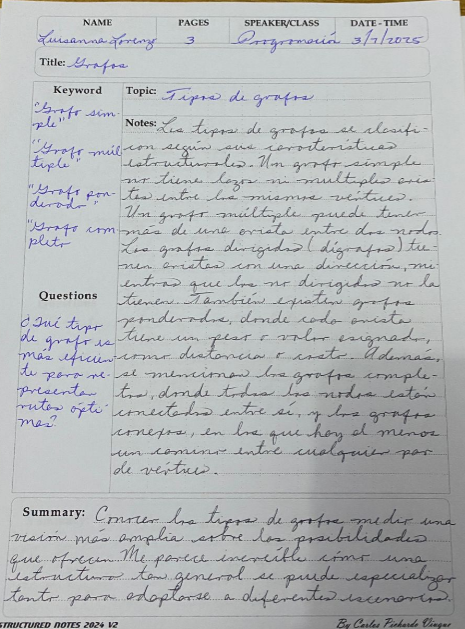 NAME PAGES SPEAKER/CLASS DATE - TIME
Luisanna Lorenzo 3 Programación 3/7/2025
Title: Grafos
Keyword
"Grafo sim-
ple"
"Grafo múl
tiple"
"Grafo pon-
derado"
"Grafo com
pleto
Questions
¿Qué tipo
de grafo es
mas eficien
te para re-
presentar
rutas ópti-
mas?
Topic: Tipos de grafos
Notes: Los tipos de grafos se clasifi-
can según sus características
estructurales. Un grafo simple
no tiene lazos ni multiples aris-
tas entre los mismos vértices.
Un grafo múltiple puede tener
más de una arista entre dos nodos.
Los grafos dirigidos (digrafos) tie-
nen aristas con una dirección, mi-
entras que los no dirigidos no la
tienen. También existen grafos
ponderados, donde cada arista
tiene un peso o valor asignado,
como distancia o costo. Ademas,
se mencionan los grafos comple-
tos, donde todos los nodos están
conectados entre sí, y los grafos
conexos, en los que hay al menos
un camino entre cualquier par
de vértices.
Summary: Conocer los tipos de grafos me dio una
visión más amplia sobre las posibilidades
que ofrecen. Me parece increíble cómo una
estructura tan general se puede especializar
tanto para adaptarse a diferentes escenarios.
STRUCTURED NOTES 2024 V2 By Carlos Pichardo Viuque